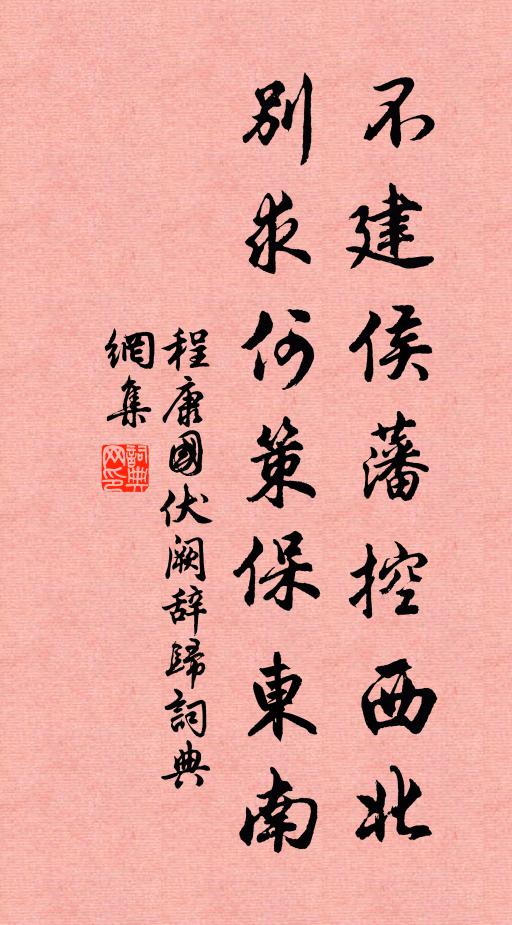 不建侯藩控西北
別求何策保東南
程康國伏闕辞歸詞典
網集
詞典
网印